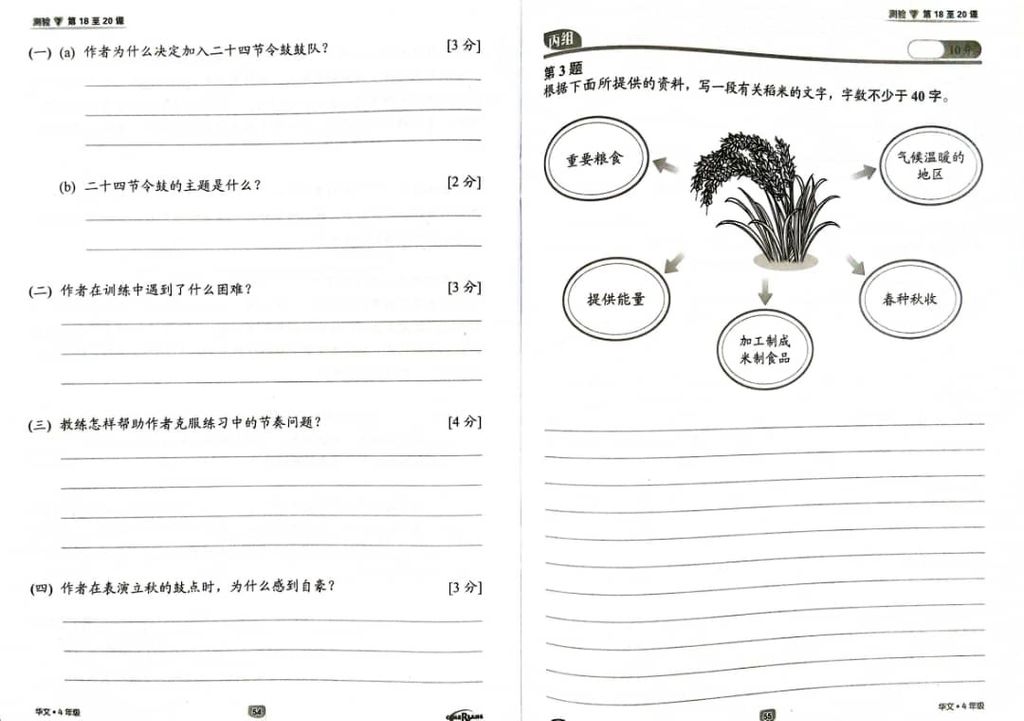 测验 7 第 18 至 20 课
(一) (a) 作者为什么决定加入二十四节令鼓鼓队？ [3 分]
(b) 二十四节令鼓的主题是什么？ [2 分]
(二) 作者在训练中遇到了什么困难？ [3 分]
(三) 教练怎样帮助作者克服练习中的节奏问题？ [4 分]
(四) 作者在表演立秋的鼓点时，为什么感到自豪？ [3 分]
华文 • 4 年级
54
测验 7 第 18 至 20 课
丙组
10 分
第 3 题
根据下面所提供的资料，写一段有关稻米的文字，字数不少于 40 字。
重要粮食
气候温暖的
地区
提供能量
春种秋收
加工制成
米制食品
55
华文 • 4 年级